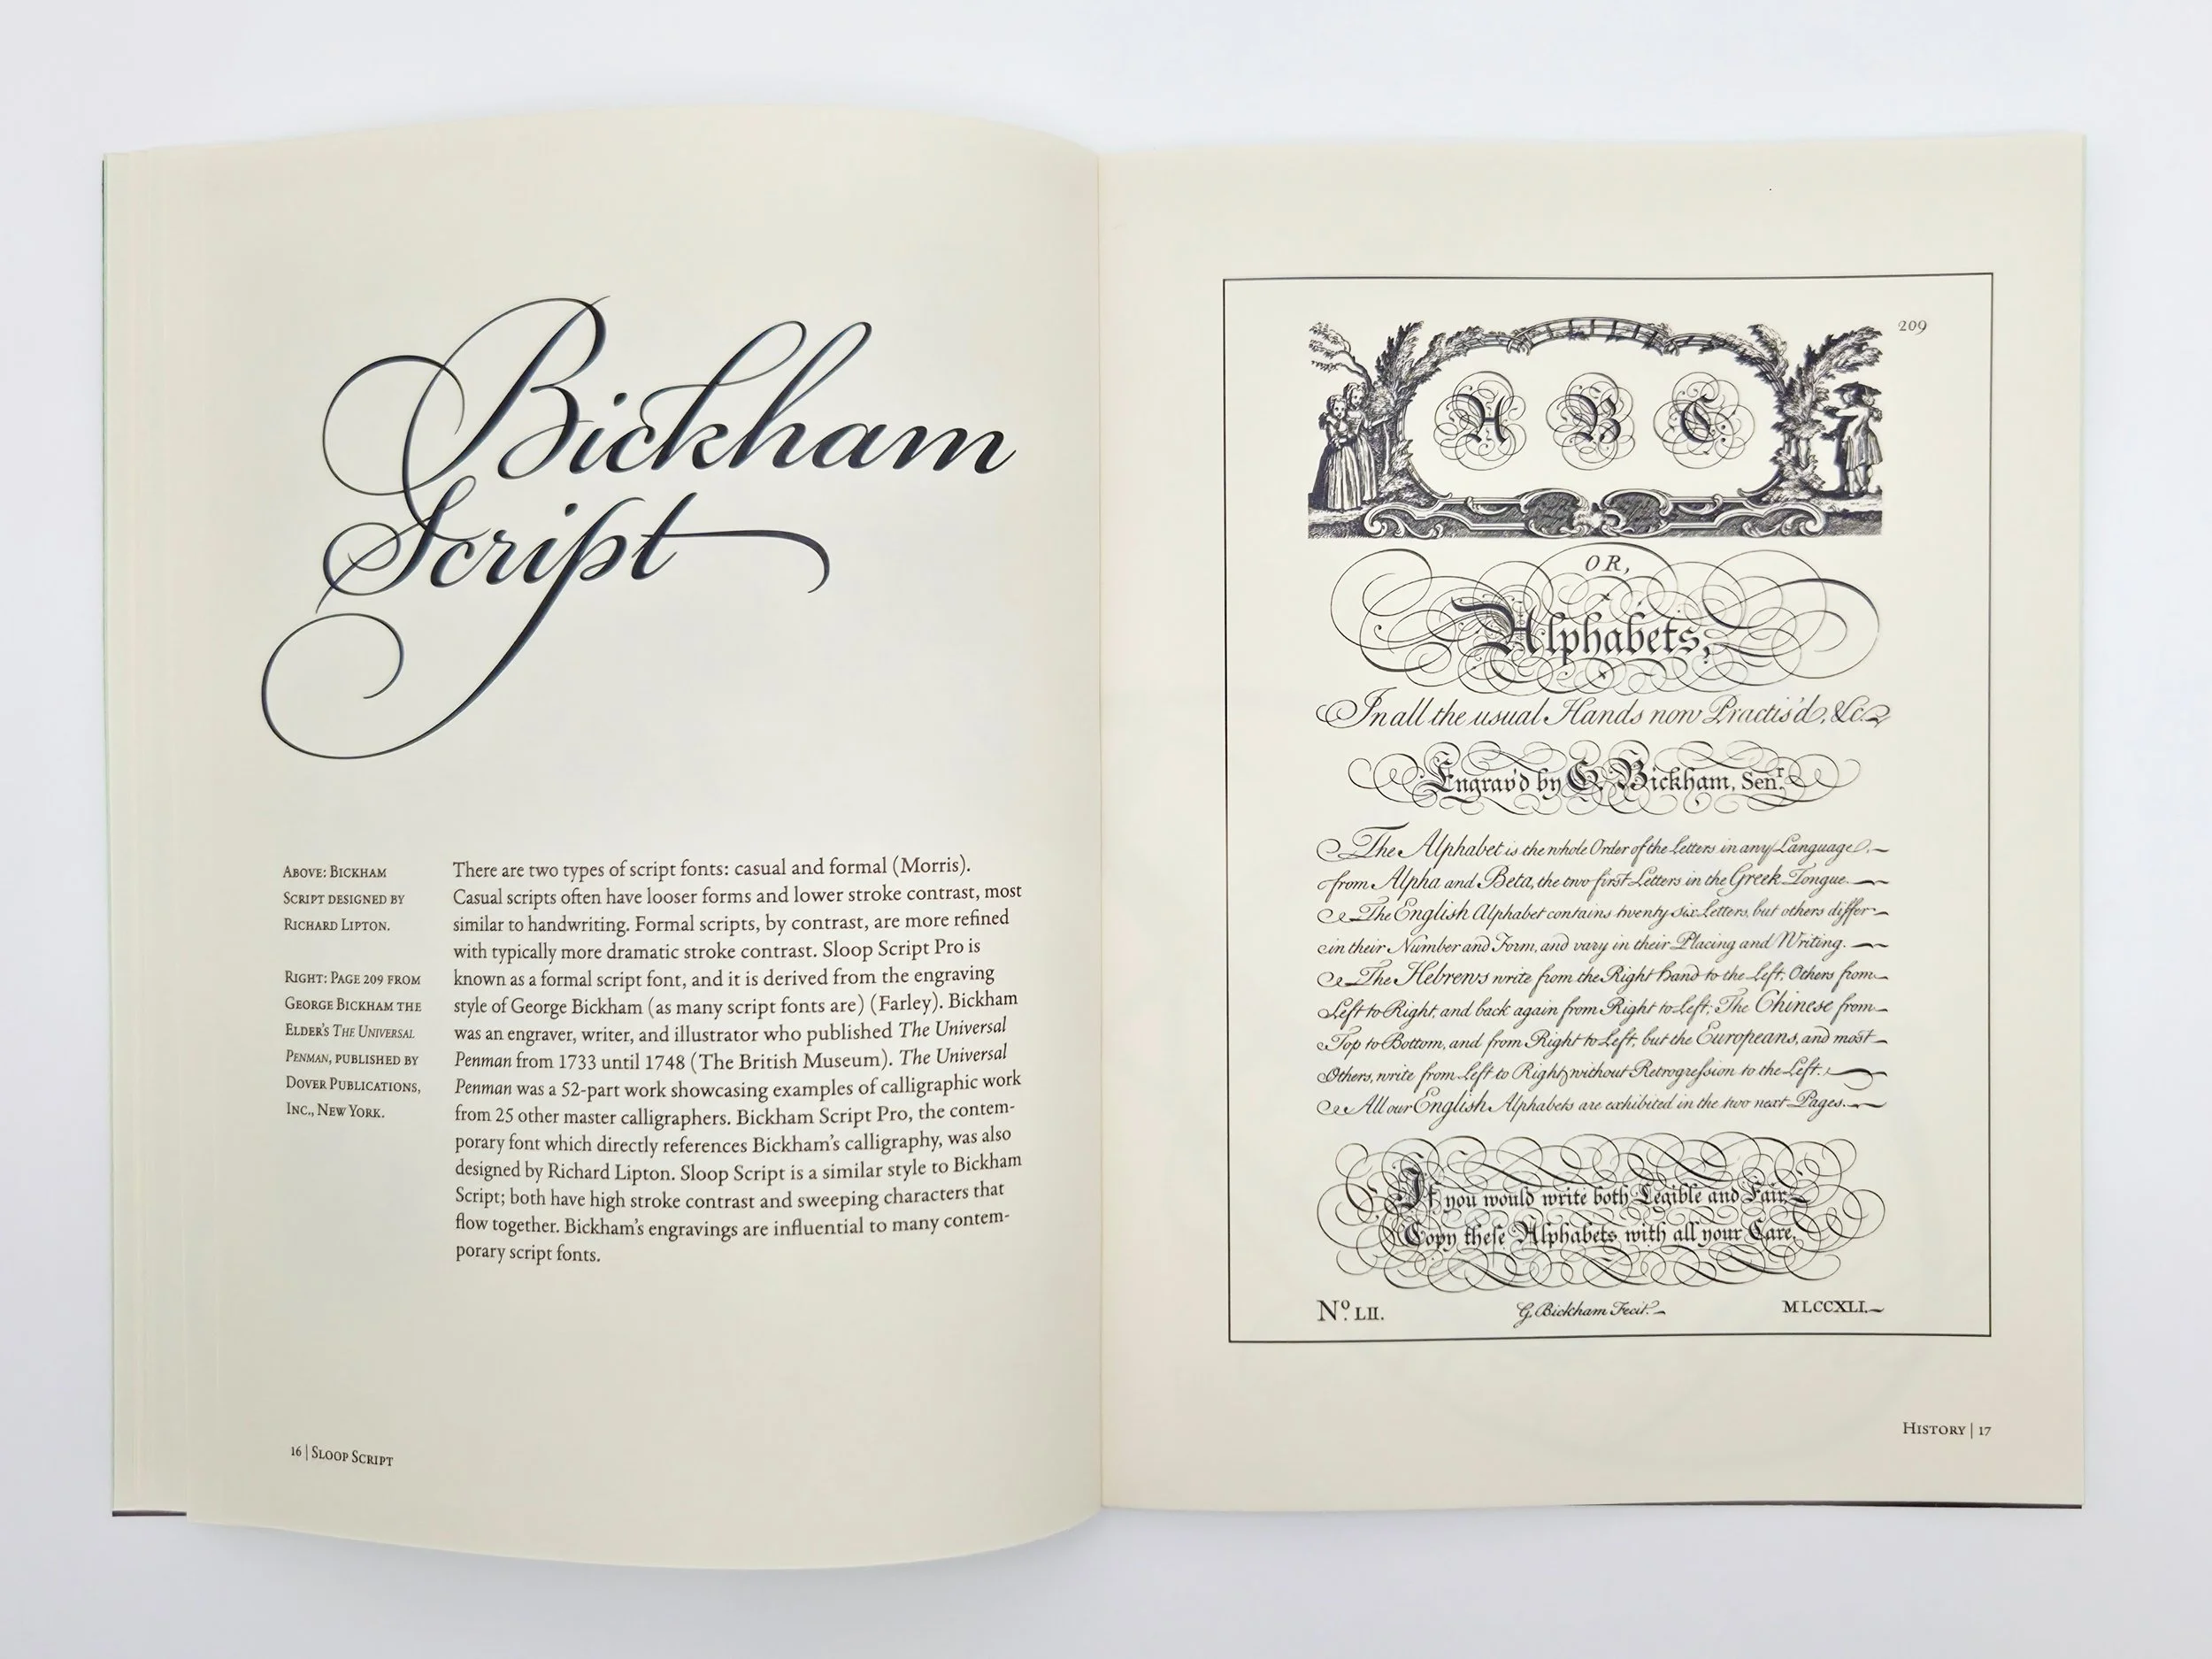 Bickham
Script
ABOVE: BICKHAM
SCRIPT DESIGNED BY
RICHARD LIPTON.
RIGHT: PAGE 209 FROM
GEORGE BICKHAM THE
ELDER'S THE UNIVERSAL
PENMAN, PUBLISHED BY
DOVER PUBLICATIONS,
INC., NEW YORK.
There are two types of script fonts: casual and formal (Morris).
Casual scripts often have looser forms and lower stroke contrast, most
similar to handwriting. Formal scripts, by contrast, are more refined
with typically more dramatic stroke contrast. Sloop Script Pro is
known as a formal script font, and it is derived from the engraving
style of George Bickham (as many script fonts are) (Farley). Bickham
was an engraver, writer, and illustrator who published The Universal
Penman from 1733 until 1748 (The British Museum). The Universal
Penman was a 52-part work showcasing examples of calligraphic work
from 25 other master calligraphers. Bickham Script Pro, the contem-
porary font which directly references Bickham's calligraphy, was also
designed by Richard Lipton. Sloop Script is a similar style to Bickham
Script; both have high stroke contrast and sweeping characters that
flow together. Bickham's engravings are influential to many contem-
porary script fonts.
16 | SLOOP SCRIPT
209
A B C
OR,
Alphabets,
In all the usual Hands now Practis'd, &c.
Engrav'd by G. Bickham, Senr.
The Alphabet is the whole Order of the Letters in any Language,
from Alpha and Beta, the two first Letters in the Greek Tongue.
The English Alphabet contains twenty six Letters, but others differ
in their Number and Form, and vary in their Placing and Writing.
The Hebrews write from the Right hand to the Left; Others from
Left to Right and back again from Right to Left; The Chinese from
Top to Bottom, and from Right to Left; but the Europeans, and most
Others, write from Left to Right without Retrogression to the Left.
All our English Alphabets are exhibited in the two next Pages.
If you would write both Legible and Fair,
Copy theſe Alphabets with all your Care.
No. LII.
G. Bickham Fecit.
MLCCXLI.
HISTORY | 17